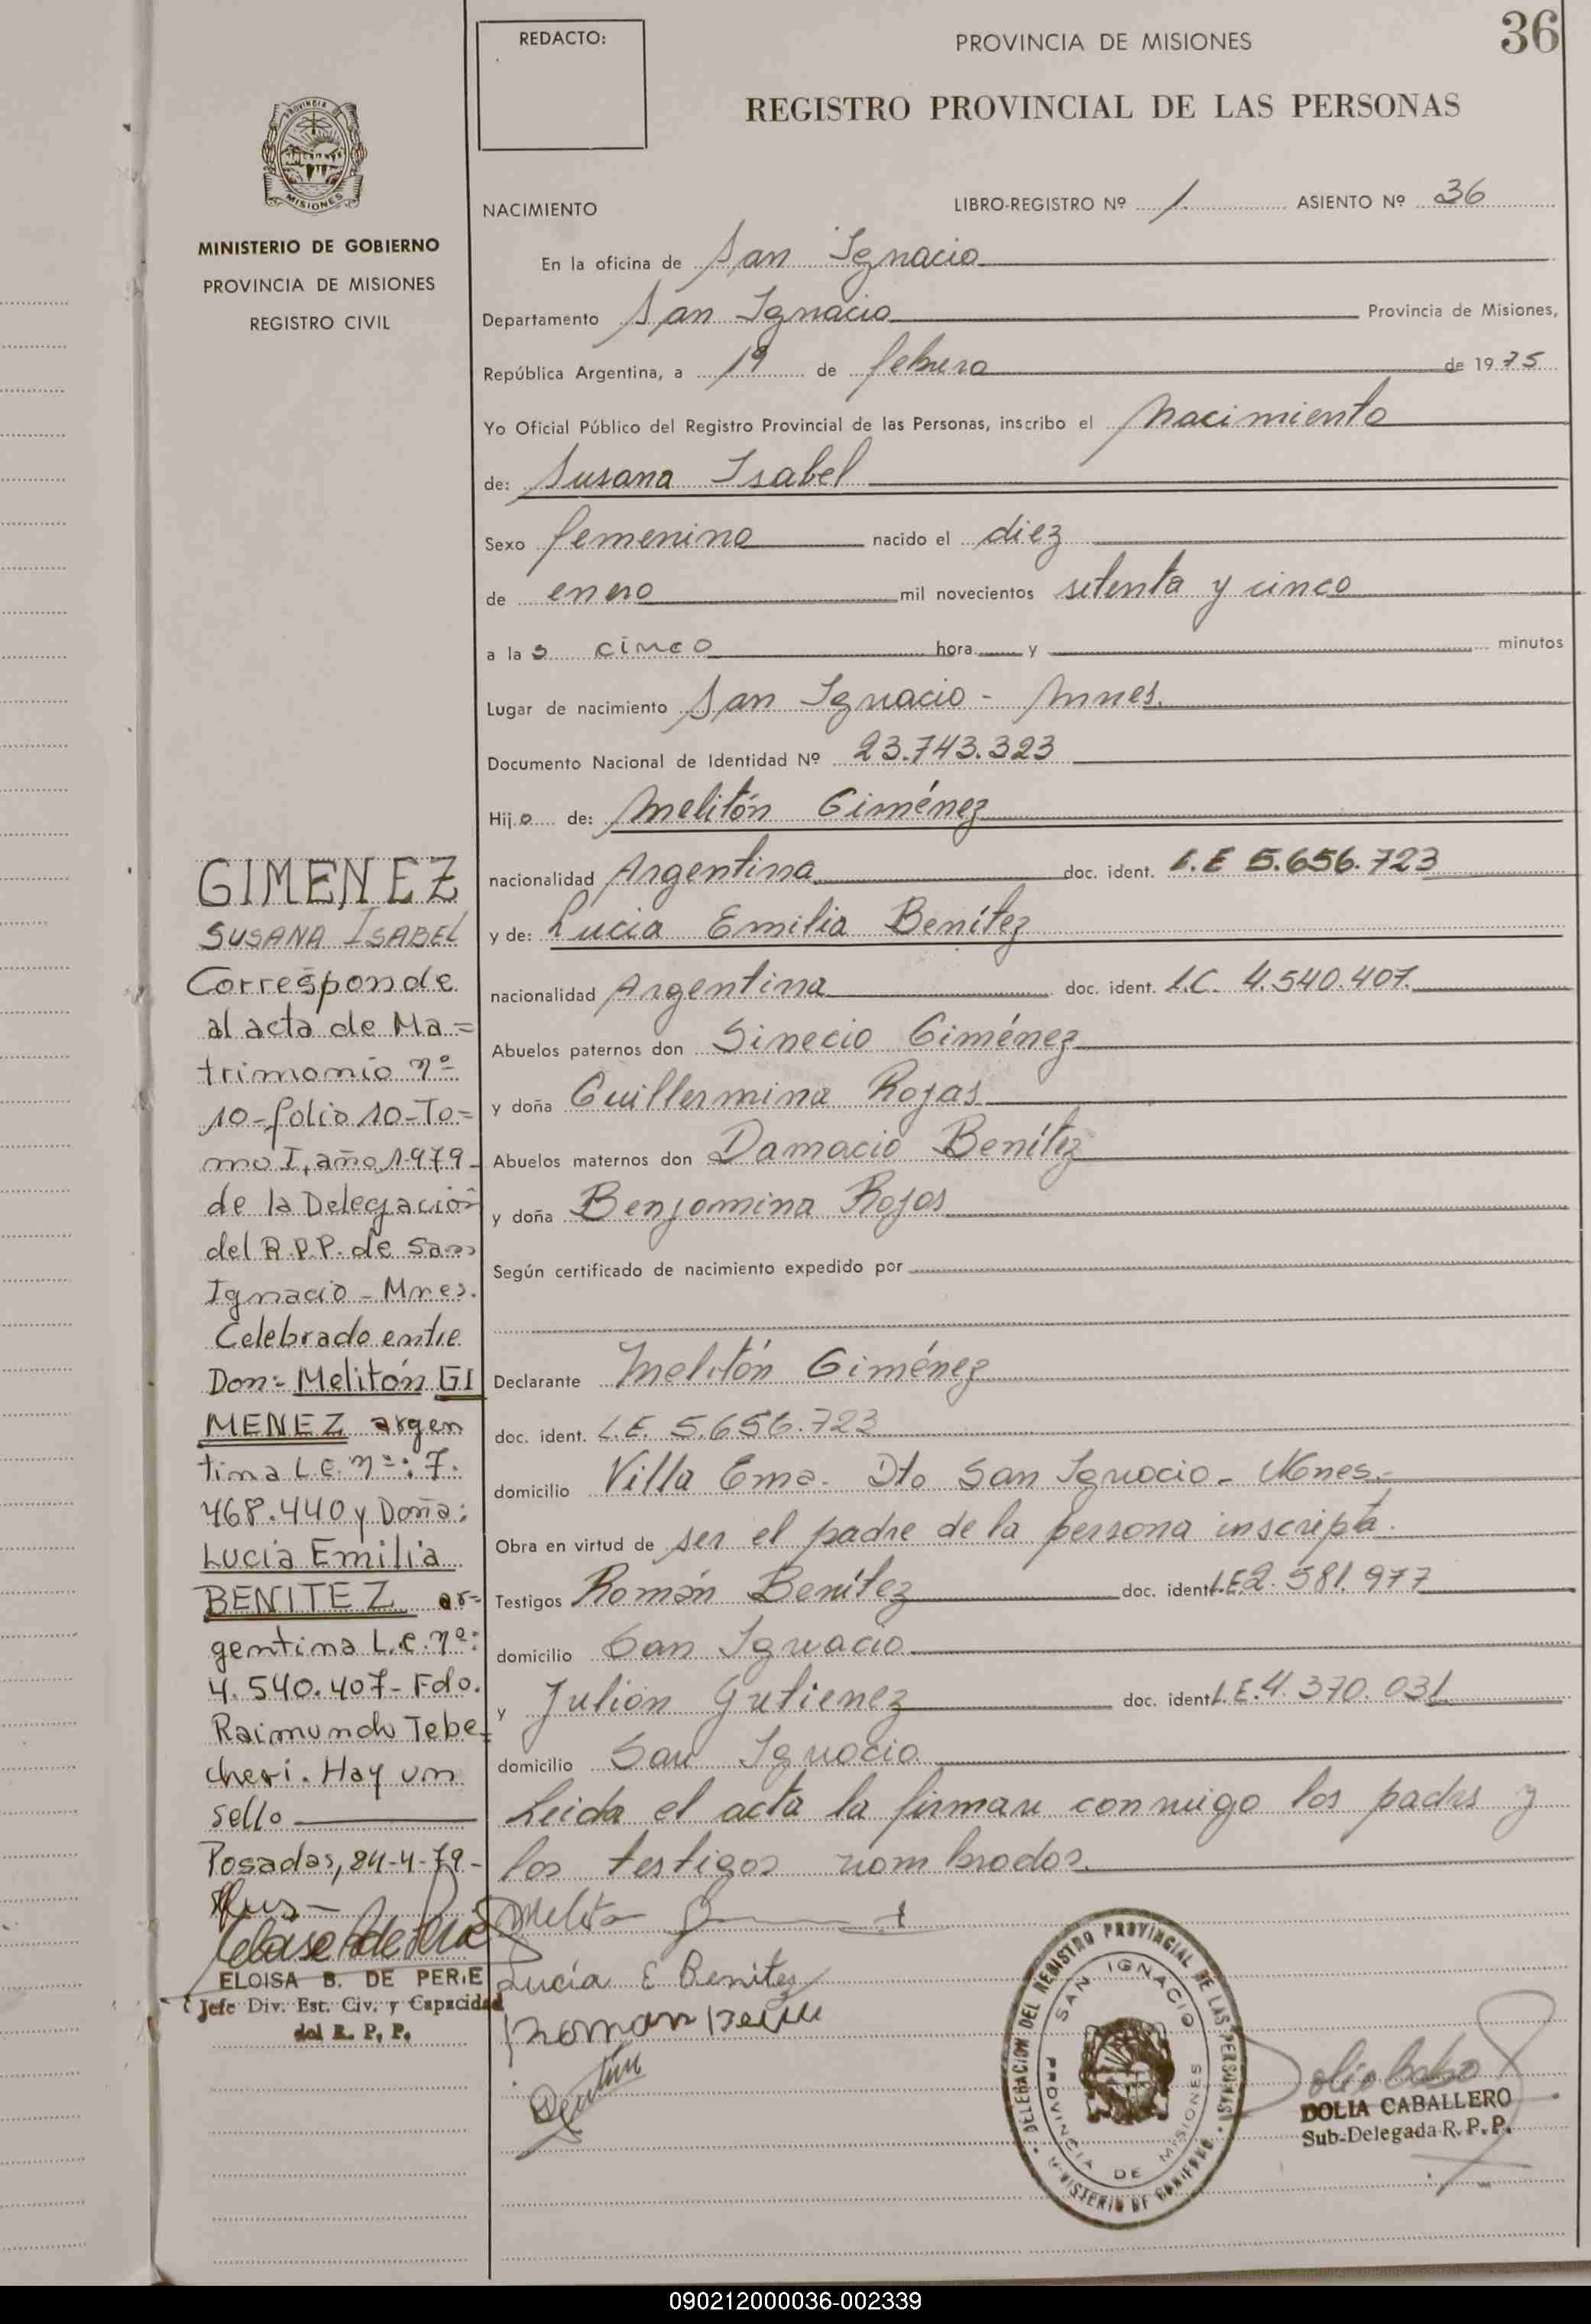 36
REDACTO:
PROVINCIA DE MISIONES
REGISTRO PROVINCIAL DE LAS PERSONAS
PROVINCIA
MISIONES
MINISTERIO DE GOBIERNO
PROVINCIA DE MISIONES
REGISTRO CIVIL
NACIMIENTO
LIBRO-REGISTRO Nº 1. ASIENTO Nº 36
En la oficina de San Ignacio
Departamento San Ignacio Provincia de Misiones,
República Argentina, a 19 de febrero de 1975
Yo Oficial Público del Registro Provincial de las Personas, inscribo el Nacimiento
de: Susana Isabel
Sexo femenino nacido el diez
de enero mil novecientos setenta y cinco
a las cinco hora y minutos
Lugar de nacimiento San Ignacio - Mnes.
Documento Nacional de Identidad Nº 23.743.323
Hijo de: Melitón Giménez
nacionalidad Argentina doc. ident. L.E 5.656.723
y de: Lucia Emilia Benítez
nacionalidad Argentina doc. ident. L.C. 4.540.407.
Abuelos paternos don Sinecio Giménez
y doña Guillermina Rojas
Abuelos maternos don Damacio Benítez
y doña Benjamina Rojas
Según certificado de nacimiento expedido por
Declarante Melitón Giménez
doc. ident. L.E. 5.656.723
domicilio Villa Ema. Dto San Ignacio - Mnes.-
Obra en virtud de ser el padre de la persona inscripta.
Testigos Román Benítez doc. ident L.E 2.581.977
domicilio San Ignacio
y Julión Gutierrez doc. ident L.E. 4.370.031
domicilio San Ignacio
Leida el acta la firman conmigo los padres y
los testigos nombrados.
GIMENEZ
SUSANA ISABEL
Corresponde
al acta de Ma=
trimonio nº
10-folio 10-To=
mo I, año 1979-
de la Delegación
del R.P.P. de San
Ignacio - Mnes.
Celebrado entre
Don:- Melitón GI
MENEZ argen
tina L.E. nº: 7.
468.440 y Doña:
Lucia Emilia
BENITEZ ar-
gentina L.C. nº:
4.540.407- Fdo.
Raimundo Tebe-
cheri. Hay un
sello
Posadas, 24-4-79-
ELOISA B. DE PERIE
Jefe Div. Est. Civ. y Capacidad
del R. P. P.
Lucía E Benitez
Roman
DELEGACION DEL REGISTRO PROVINCIAL DE LAS PERSONAS
SAN IGNACIO
PROVINCIA DE MISIONES
MINISTERIO DE GOBIERNO
DOLIA CABALLERO
Sub-Delegada R. P. P.
090212000036-002339